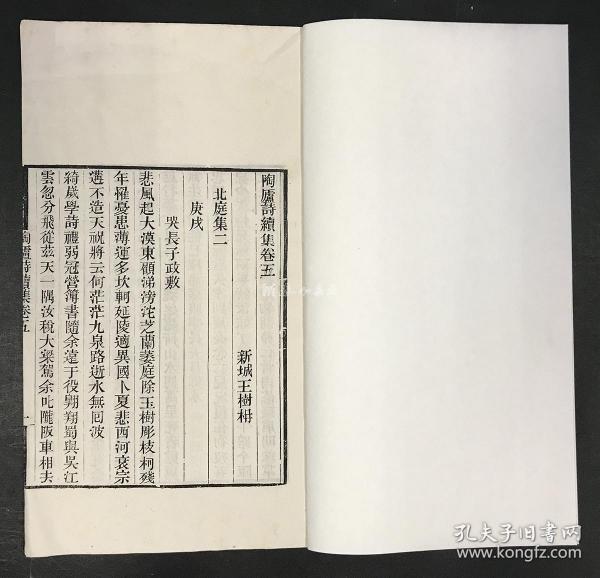 陶廬詩續集卷五
新城王樹枏
北庭集二
庚戌
哭長子政敷
悲風起大漠東顧涕滂沱芝蘭萎庭除玉樹彫枝柯殘
年罹憂患薄運多坎軻延陵適異國卜夏悲西河哀宗
遘不造天祝將云何茫茫九泉路逝水無回波
綺歲學詩禮弱冠營簿書隨余遠于役翱翔蜀與吳江
雲忽分飛從茲天一隅汝稅大梁駕余叱隴阪車相夫
陶廬詩續集卷五
一
孔夫子旧书网
www.kongfz.com